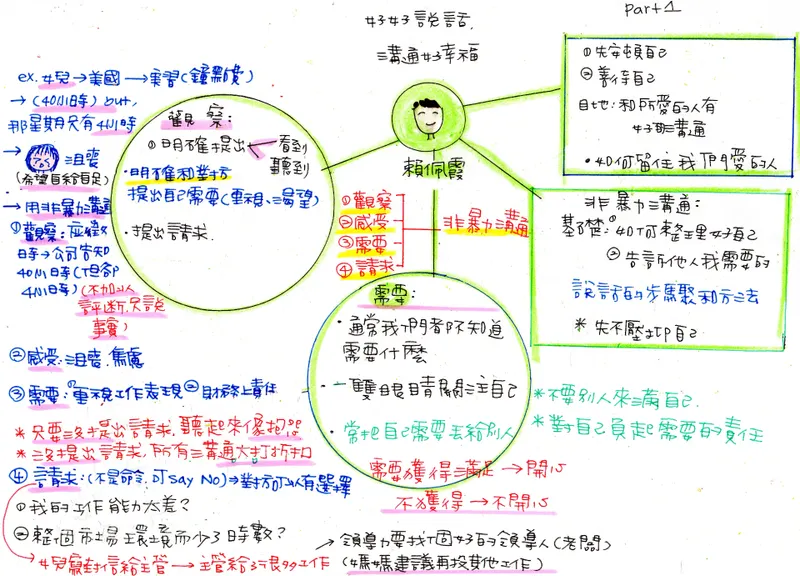 part 1
好好說話,
溝通好幸福
賴佩霞
①先安頓自己
②善待自己
目地:和所愛的人有
好的溝通
•如何留住我們愛的人
非暴力溝通:
基礎:①如何整理好自己
②告訴他人我需要的
說話的步驟和方法
*先不壓抑自己
①觀察
②感受
③需要
④請求
非暴力溝通
觀察:
①明確提出
看到
聽到
•明確和對方
提出自己需要(重視、渴望)
•提出請求.
需要:
•通常我們都不知道
需要什麼
•一雙眼睛關注自己
•常把自己需要丟給別人
需要獲得滿足→開心
不獲得→不開心
*不要別人來滿足自己.
*對自己負起需要的責任
ex.女兒→美國→實習(鐘點費)
→(40小時) but,
那星期只有4小時
→沮喪
(希望自給自足)
→用非暴力溝通
①觀察:應徵
時→公司告知
40小時(但合即
4小時)(不加以
評斷,只說
事實)
②感受:沮喪.焦慮
③需要:①重視工作表現②財務上責任
*只要沒提出請求,聽起來像抱怨
*沒提出請求,所有溝通大打折扣
④請求:(不是命令,可say No)→對方可以有選擇
①我的工作能力太差?
②整個市場環境而少3時數?
女兒寫封信給主管→主管給了很多工作
→領導力要找個好的領導人(老闆)
(媽媽建議再投其他工作)